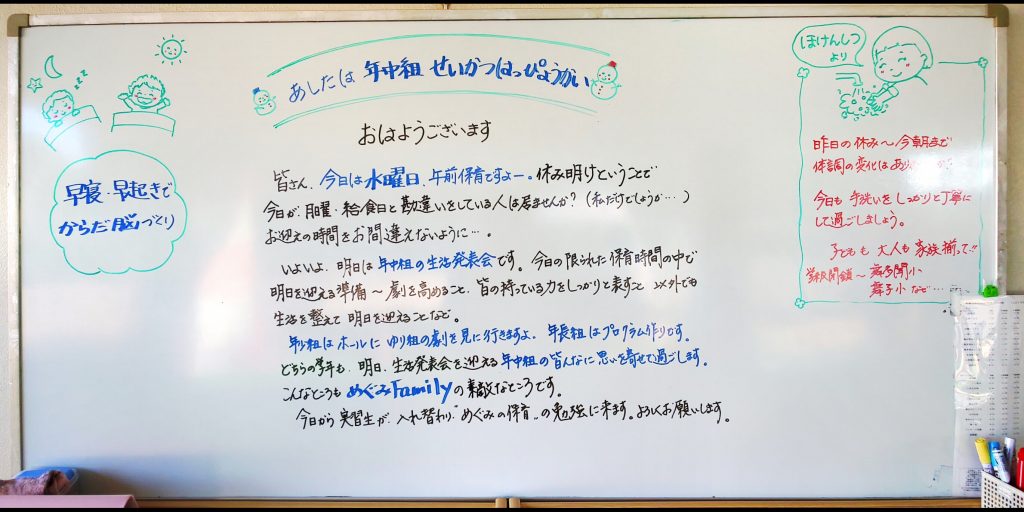 あしたは 年中組 せいかつはっぴょうかい
おはようございます
皆さん、今日は水曜日、午前保育ですよー。休み明けということで
今日が、月曜・給食日と勘違いをしている人は居ませんか？(私だけでしょうが…)
お迎えの時間をお間違えないように…。
いよいよ、明日は年中組の生活発表会です。今日の限られた保育時間の中で
明日を迎える準備〜劇を高めること、皆の持っている力をしっかりと表すこと 以外でも
生活を整えて明日を迎えることなど。
年少組はホールにゆり組の劇を見に行きますよ。年長組はプログラム作りです。
どちらの学年も、明日、生活発表会を迎える年中組の皆んなに思いを寄せて過ごします。
こんなところもめぐみFamilyの素敵なところです。
今日から実習生が、入れ替わり"めぐみの保育"の勉強に来ます。よろしくお願いします。
zzz
早寝・早起きで
からだ・脳づくり
ほけんしつ
より
昨日の休み〜今朝まで
体調の変化は
今日も手洗いをしっかりと丁寧に
して過ごしましょう。
子どもも大人も家族揃って!!
学級閉鎖〜 舞多聞小
舞子小 など…